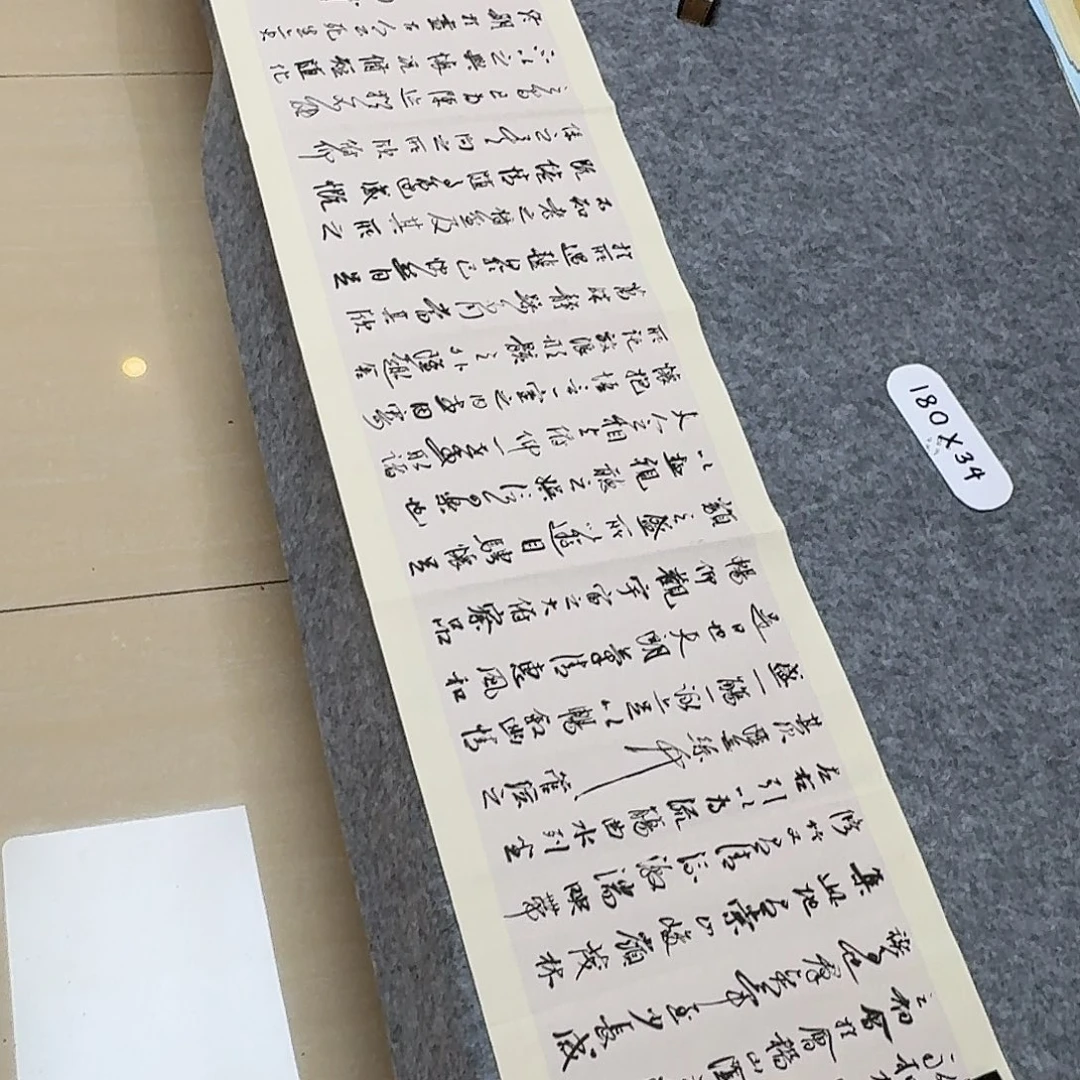 之初會於會稽山陰
禊事也群賢畢至少長咸
集此地有崇山峻嶺茂林
修竹又有清流激湍映帶
左右引以為流觴曲水列坐
其次雖無絲竹管弦之
盛一觴一詠亦足以暢叙幽情
是日也天朗氣清惠風和
暢仰觀宇宙之大俯察品
類之盛所以遊目騁懷足
以極視聽之娛信可樂也
夫人之相與俯仰一世或取諸
懷抱悟言一室之内或因寄
所託放浪形骸之外雖趣舍
萬殊靜躁不同當其欣
於所遇暫得於己快然自足
不知老之將至及其所之
既倦情隨事遷感慨
係之矣向之所欣俛仰
之間已為陳迹猶不能不
以之興懷況脩短隨化
終期於盡古人云死生亦大
180X34